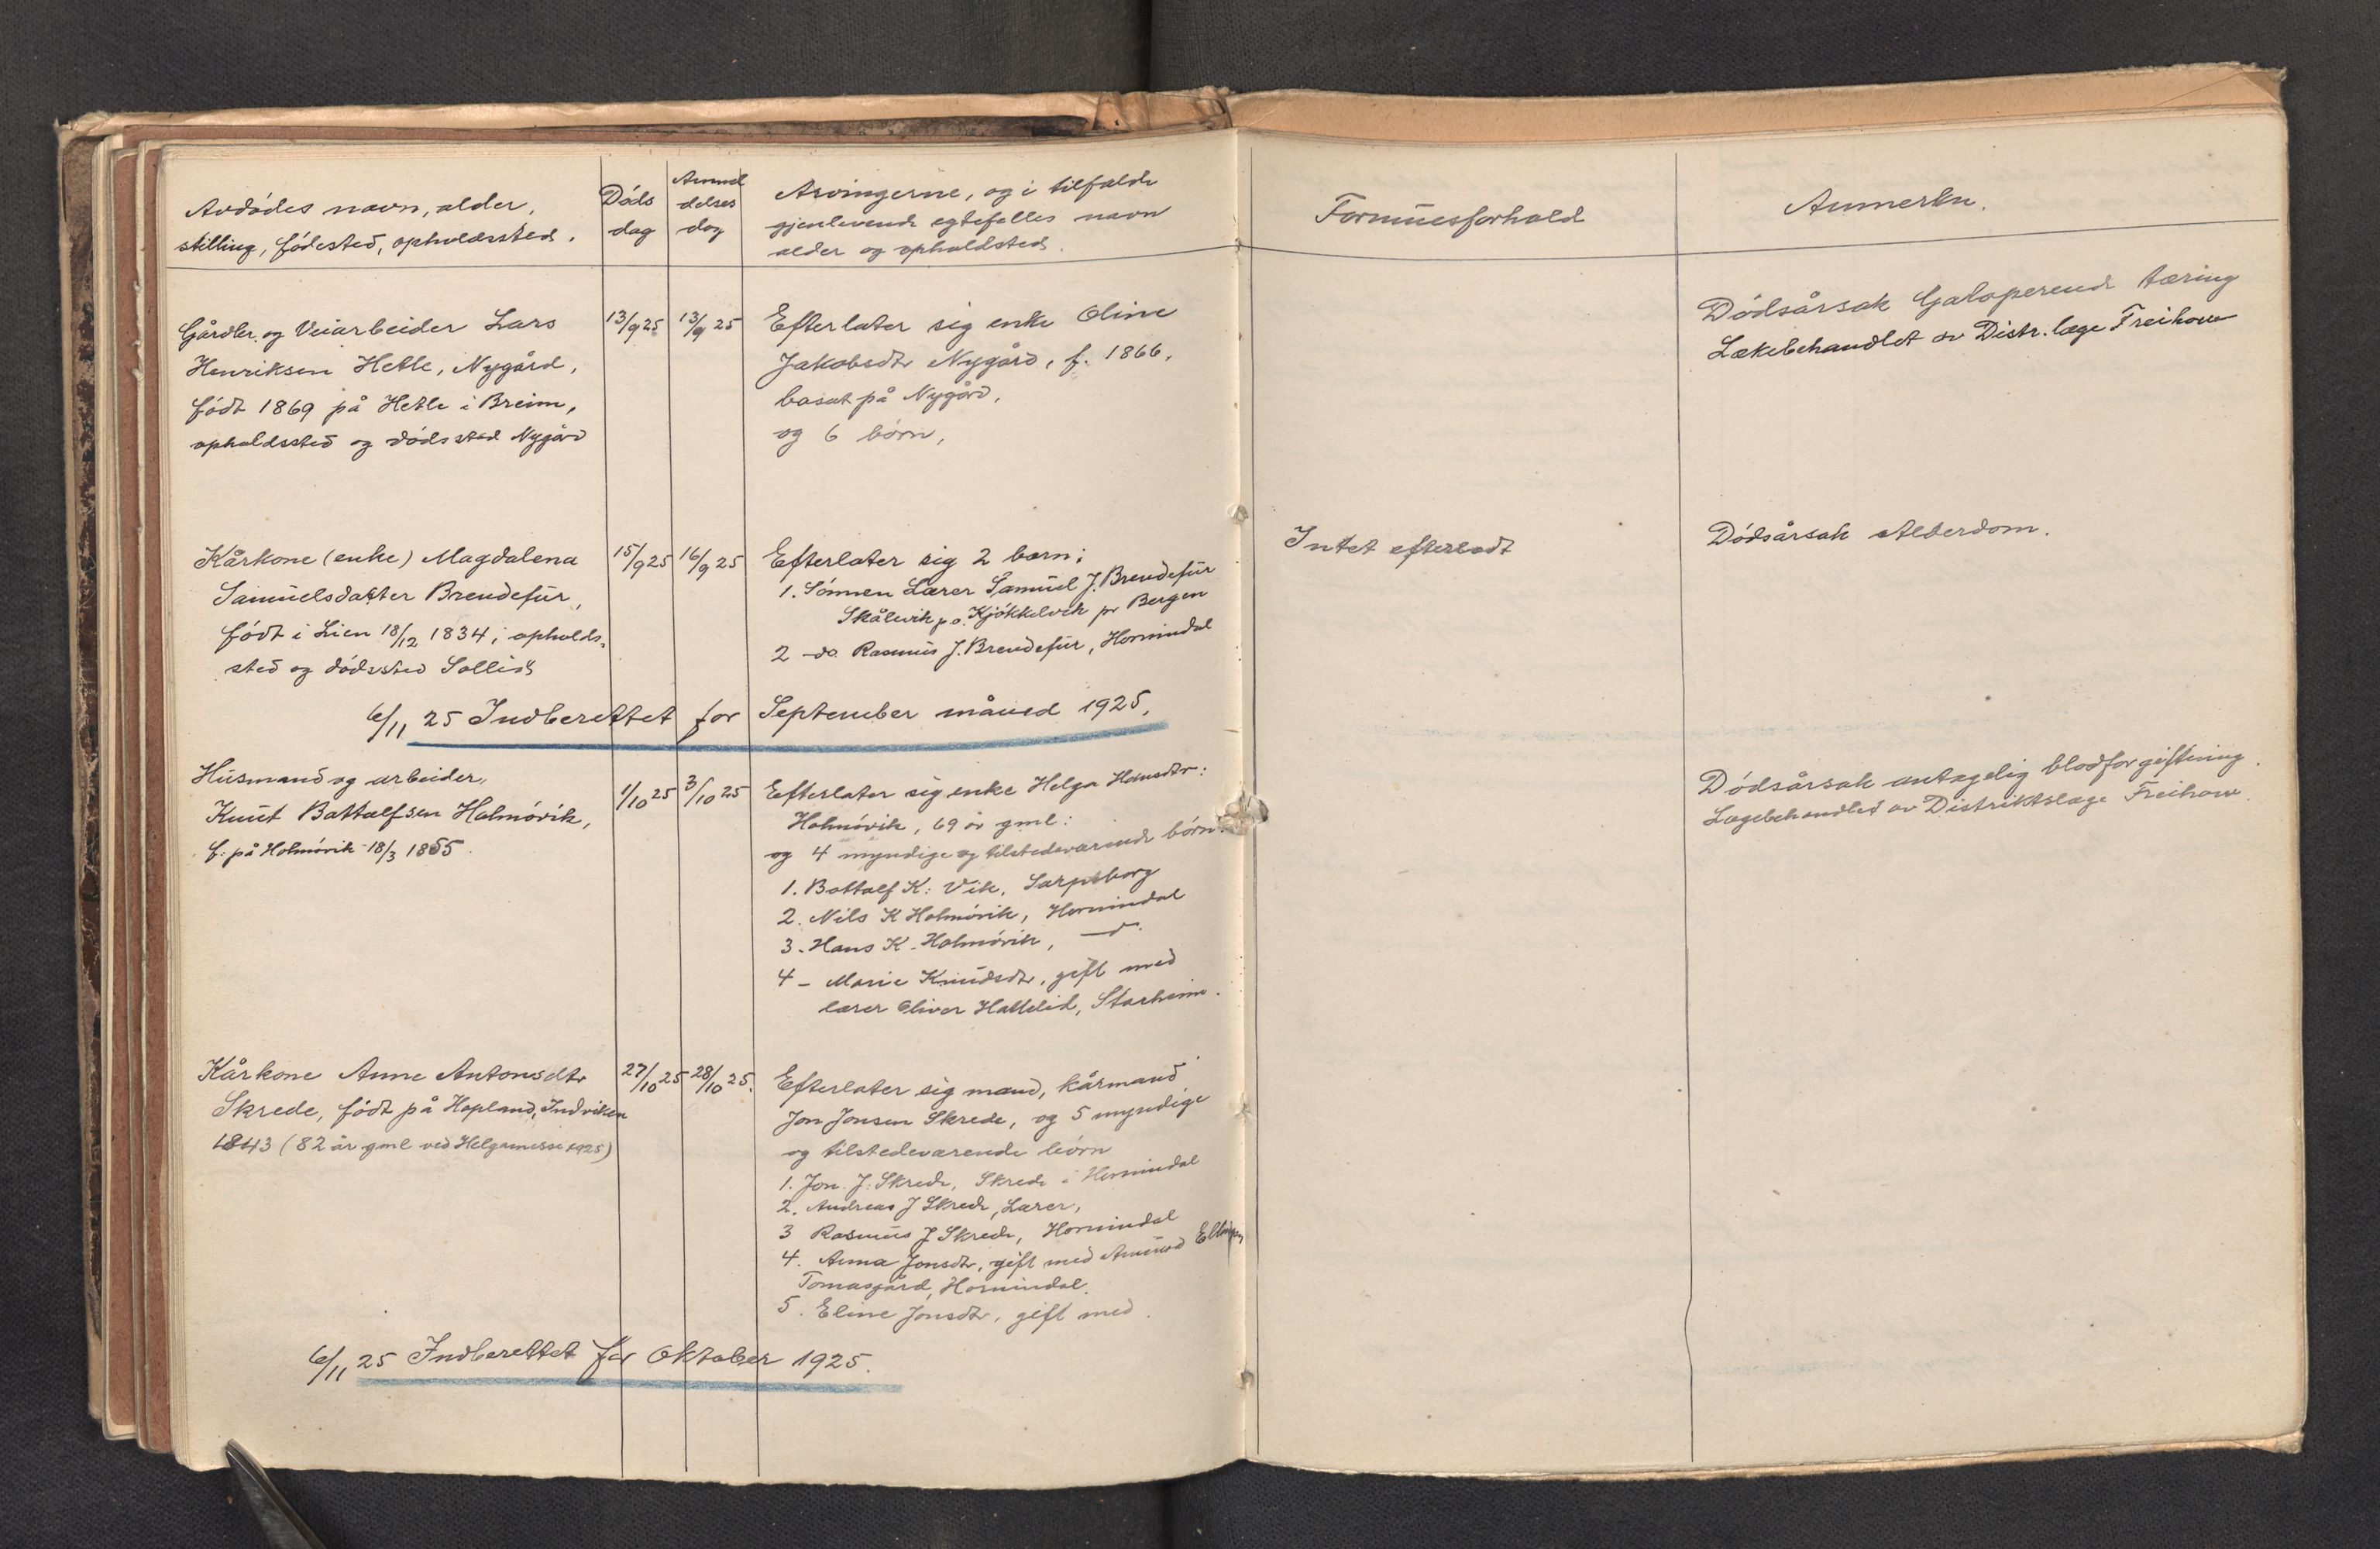 Avdødes navn, alder,
stilling, fødested, opholdssted.
Døds
dag
Anmel
delses
dag
Arvingerne, og i tilfælde
gjenlevende egtefælles navn
alder og opholdsted.
Formuesforhold
Anmerkn.
Gårdbr. og Veiarbeider Lars
Henriksen Hetle, Nygård,
født 1869 på Hetle i Breim,
opholdssted og dødssted Nygård
13/9 25
13/9 25
Efterlater sig enke Oline
Jakobsdtr Nygård, f. 1866,
bosat på Nygård,
og 6 børn,
Dødsårsak Galoperende tæring
Lækebehandlet av Distr. læge Freihow
Kårkone (enke) Magdalena
Samuelsdatter Brendefur,
født i Lien 18/12 1834, opholds-
sted og dødssted Sollid
15/9 25
16/9 25
Efterlater sig 2 barn:
1. Sønnen Lærer Samuel J. Brendefur
Skålevik p.o. Kjøkkelvik pr Bergen
2 — do. Rasmus J. Brendefur, Hornindal
Intet efterladt
Dødsårsak Alderdom.
6/11 25 Indberettet for September måned 1925.
Husmand og arbeider,
Knut Battalfsen Holmøvik,
f. på Holmøvik 18/3 1855.
1/10 25
3/10 25
Efterlater sig enke Helga Hansdtr:
Holmøvik, 69 år gml:
og 4 myndige og tilstedeværende børn:
1. Battalf K. Vik, Sarpsborg
2. Nils K Holmøvik, Hornindal
3. Hans K. Holmøvik, — d.
4 - Marie Knudsdtr, gift med
lærer Oliver Hattelid, Starheim.
Dødsårsak antagelig blodforgiftning.
Lægebehandlet av Distriktslæge Freihow.
Kårkone Anne Antonsdtr
Skrede, født på Hopland, Indviken
1843 (82 år gml ved Helgamesse 1925)
27/10 25
28/10 25.
Efterlater sig mand, kårmand
Jon Jonsen Skrede, og 5 myndige
og tilstedeværende børn
1. Jon J. Skrede, Skrede i Hornindal
2. Andreas J Skrede, Lærer,
3 Rasmus J Skrede, Hornindal
4. Anna Jonsdtr, gift med Amund
Tomasgård, Hornindal.
5. Eline Jonsdtr, gift med.
6/11 25 Indberettet for Oktober 1925.